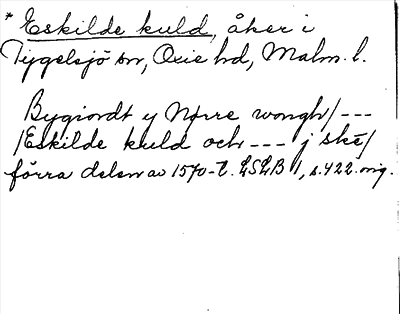 * Eskilde kuld, åker i
Tygelsjö sn, Oxie hd, Malm. l.
Bygiordt y Nørre wongh/ ---
/Eskilde kuld och --- j ske/
förra delen av 1570-t. LSLB 1, s. 422. orig.